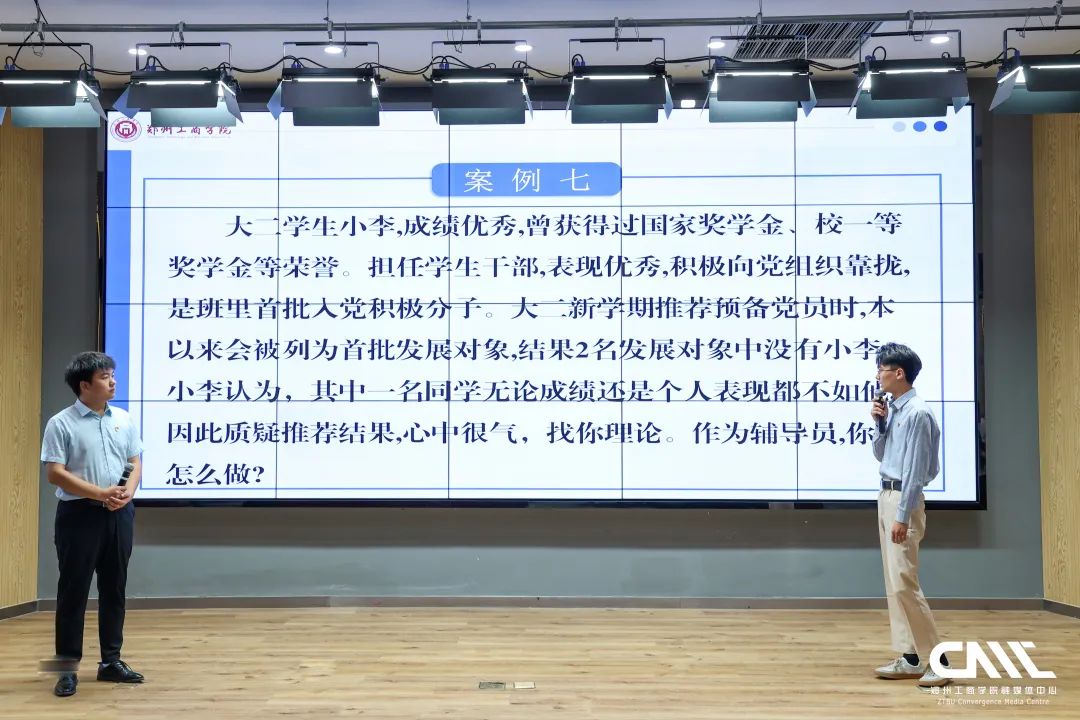 郑州工商学院
案例七
大二学生小李,成绩优秀,曾获得过国家奖学金、校一等
奖学金等荣誉。担任学生干部,表现优秀,积极向党组织靠拢,
是班里首批入党积极分子。大二新学期推荐预备党员时,本
以来会被列为首批发展对象,结果2名发展对象中没有小李
小李认为，其中一名同学无论成绩还是个人表现都不如他
因此质疑推荐结果,心中很气，找你理论。作为辅导员,你
怎么做?
CMC
郑州工商学院融媒体中心
ZTBU Convergence Media Centre